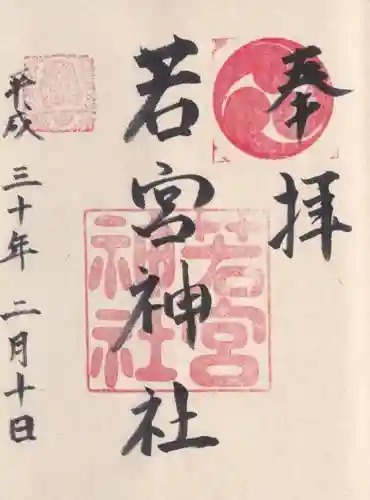 奉拝
若宮神社
若宮神社
平成三十年二月十日